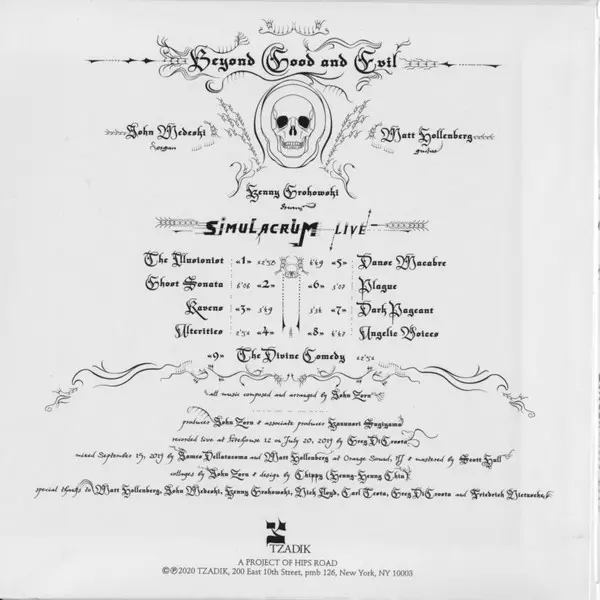 Beyond Good and Evil
John Medeski
organ
Matt Hollenberg
guitar
Kenny Grohowski
drums
SIMULACRUM LIVE
The Illusionist «1» 12'58
Ghost Sonata 6'06 «2»
Ravens «3» 5'49
Alterities 2'52 «4»
6'49 «5» Danse Macabre
«6» 5'07 Plague
«7» Dark Pageant
«8» 6'47 Angelic Voices
«9» The Divine Comedy 12'52
all music composed and arranged by John Zorn
producer John Zorn & associate producer Kazunori Sugiyama
recorded live at Firehouse 12 on July 20, 2019 by Greg DiCrosta
mixed September 19, 2019 by James Dellatacoma and Matt Hollenberg at Orange Sound, NJ & mastered by Scott Hull
collages by John Zorn & design by Chippy (Heung-Heung Chin)
special thanks to Matt Hollenberg, John Medeski, Kenny Grohowski, Nick Lloyd, Carl Testa, Greg DiCrosta and Friedrich Nietzsche
TZADIK
A PROJECT OF HIPS ROAD
©℗2020 TZADIK, 200 East 10th Street, pmb 126, New York, NY 10003